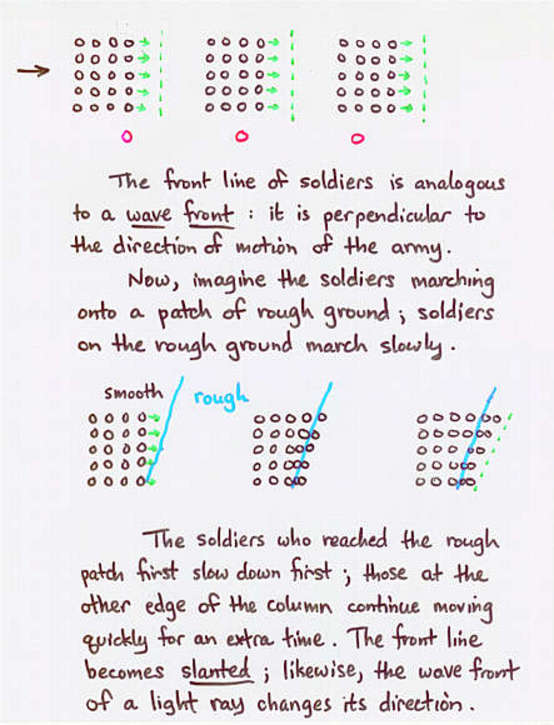 The front line of soldiers is analogous
to a wave front : it is perpendicular to
the direction of motion of the army.
Now, imagine the soldiers marching
onto a patch of rough ground ; soldiers
on the rough ground march slowly.
smooth rough
The soldiers who reached the rough
patch first slow down first ; those at the
other edge of the column continue moving
quickly for an extra time. The front line
becomes slanted ; likewise, the wave front
of a light ray changes its direction.